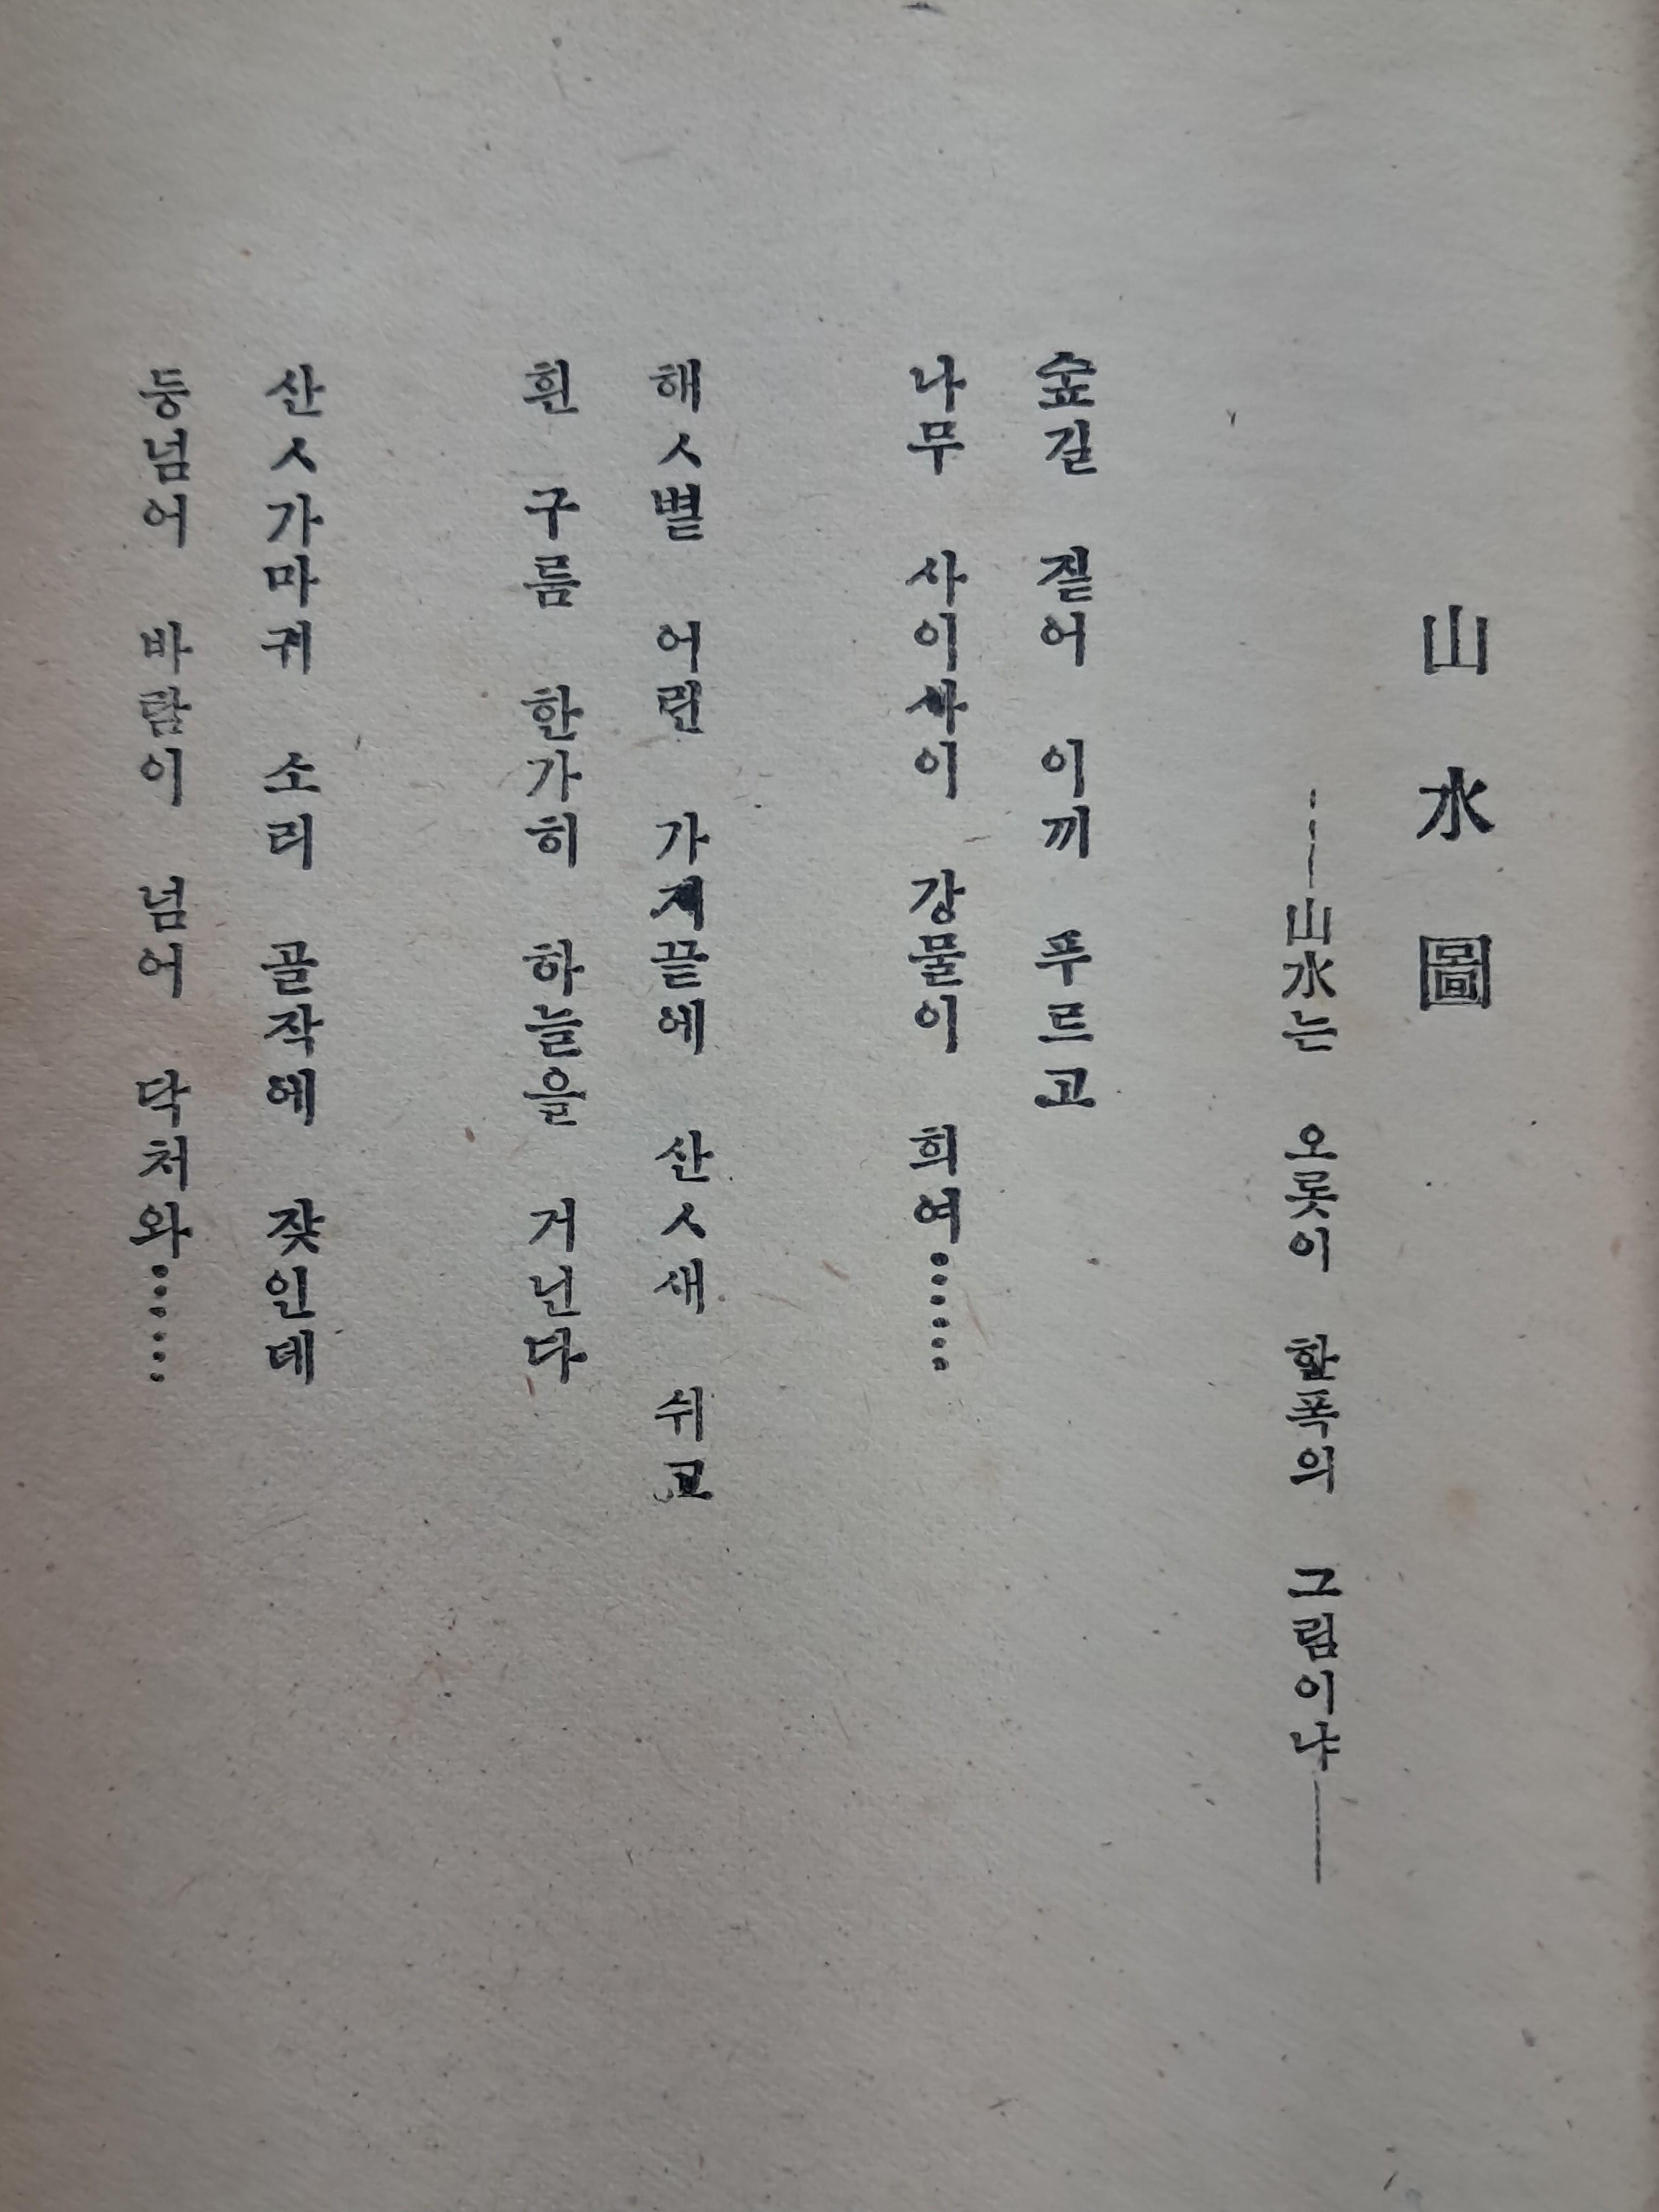 山水圖
――山水는 오롯이 한폭의 그림이냐――
숲길 짙어 이끼 푸르고
나무 사이사이 강물이 희여……
해ㅅ볕 어린 가지끝에 산ㅅ새 쉬고
흰 구름 한가히 하늘을 거닌다
산ㅅ가마귀 소리 골작에 잦인데
등넘어 바람이 넘어 닥처와……